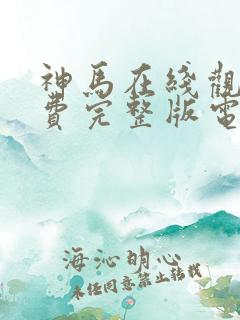 神馬在綫觀
費完整版電
海沁明心
未经同意禁止转载